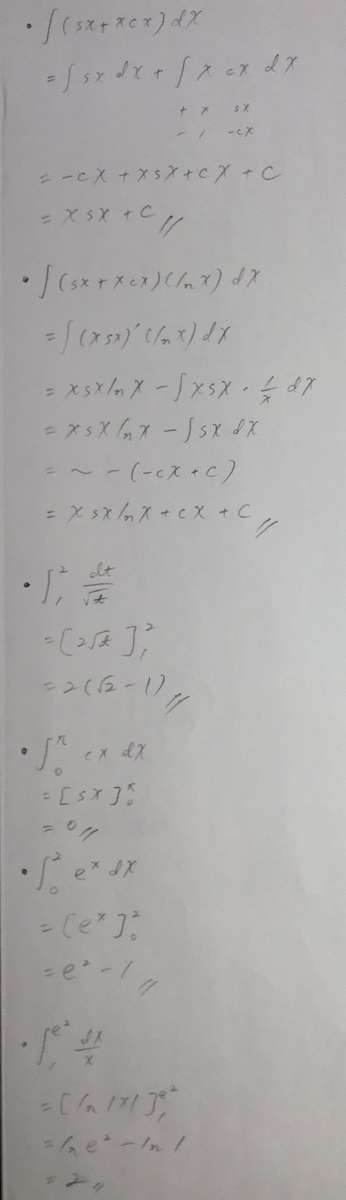 • ∫(sx+xcx)dx
= ∫sx dx + ∫ x cx dx
+ x sx
- 1 -cx
= -cx + xsx + cx + C
= x sx + C //
• ∫(sx+xcx)(ln x) dx
= ∫(xsx)′(ln x) dx
= xsx ln x - ∫xsx · 1/x dx
= xsx ln x - ∫sx dx
= ~ - (-cx + C)
= x sx ln x + cx + C //
• ∫₁² dt/√t
= [2√t]₁²
= 2(√2 - 1) //
• ∫₀^π cx dx
= [sx]₀^π
= 0 //
• ∫₀² eˣ dx
= [eˣ]₀²
= e² - 1 //
• ∫₁^e² dx/x
= [ln |x|]₁^e²
= ln e² - ln 1
= 2 //